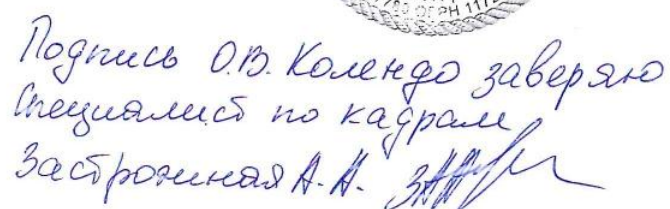 ОГРН 1172
Подпись О.В. Колендо заверяю
Специалист по кадрам
Застрожная А.А.